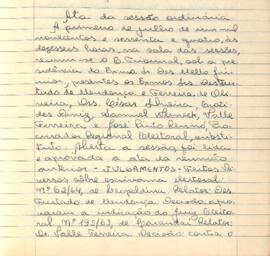 Ata da sessão ordinária
A primeiro de julho de um mil
novecentos e sessenta e quatro, às
dezesseis horas, na sala das sessões,
reuniu-se o E. Tribunal, sob a pre-
sidência do Exmo Sr. Des. Mello Jú-
nior, presentes os Exmos Srs. Des.
Gustado de Mendonça e Ferreira de Oli-
veira, Drs. Cesar Silveira,
Diniz, Samuel Vlasneck, Valle
Ferreira e José Paulo Renno, Pro-
curador Regional Eleitoral, substi-
tuto. Aberta a sessão, foi lida
e aprovada a ata da reunião
anterior. - JULGAMENTOS - Feitos di-
versos sôbre economia eleitoral:
Nº 62/64, de Leopoldina. Relator Des.
Furtado de Mendonça. Decisão: apro-
varam a indicação do Juiz Eleito-
ral. Nº 195/63, de Carandaí. Relator:
Dr. Valle Ferreira. Decisão: contra o